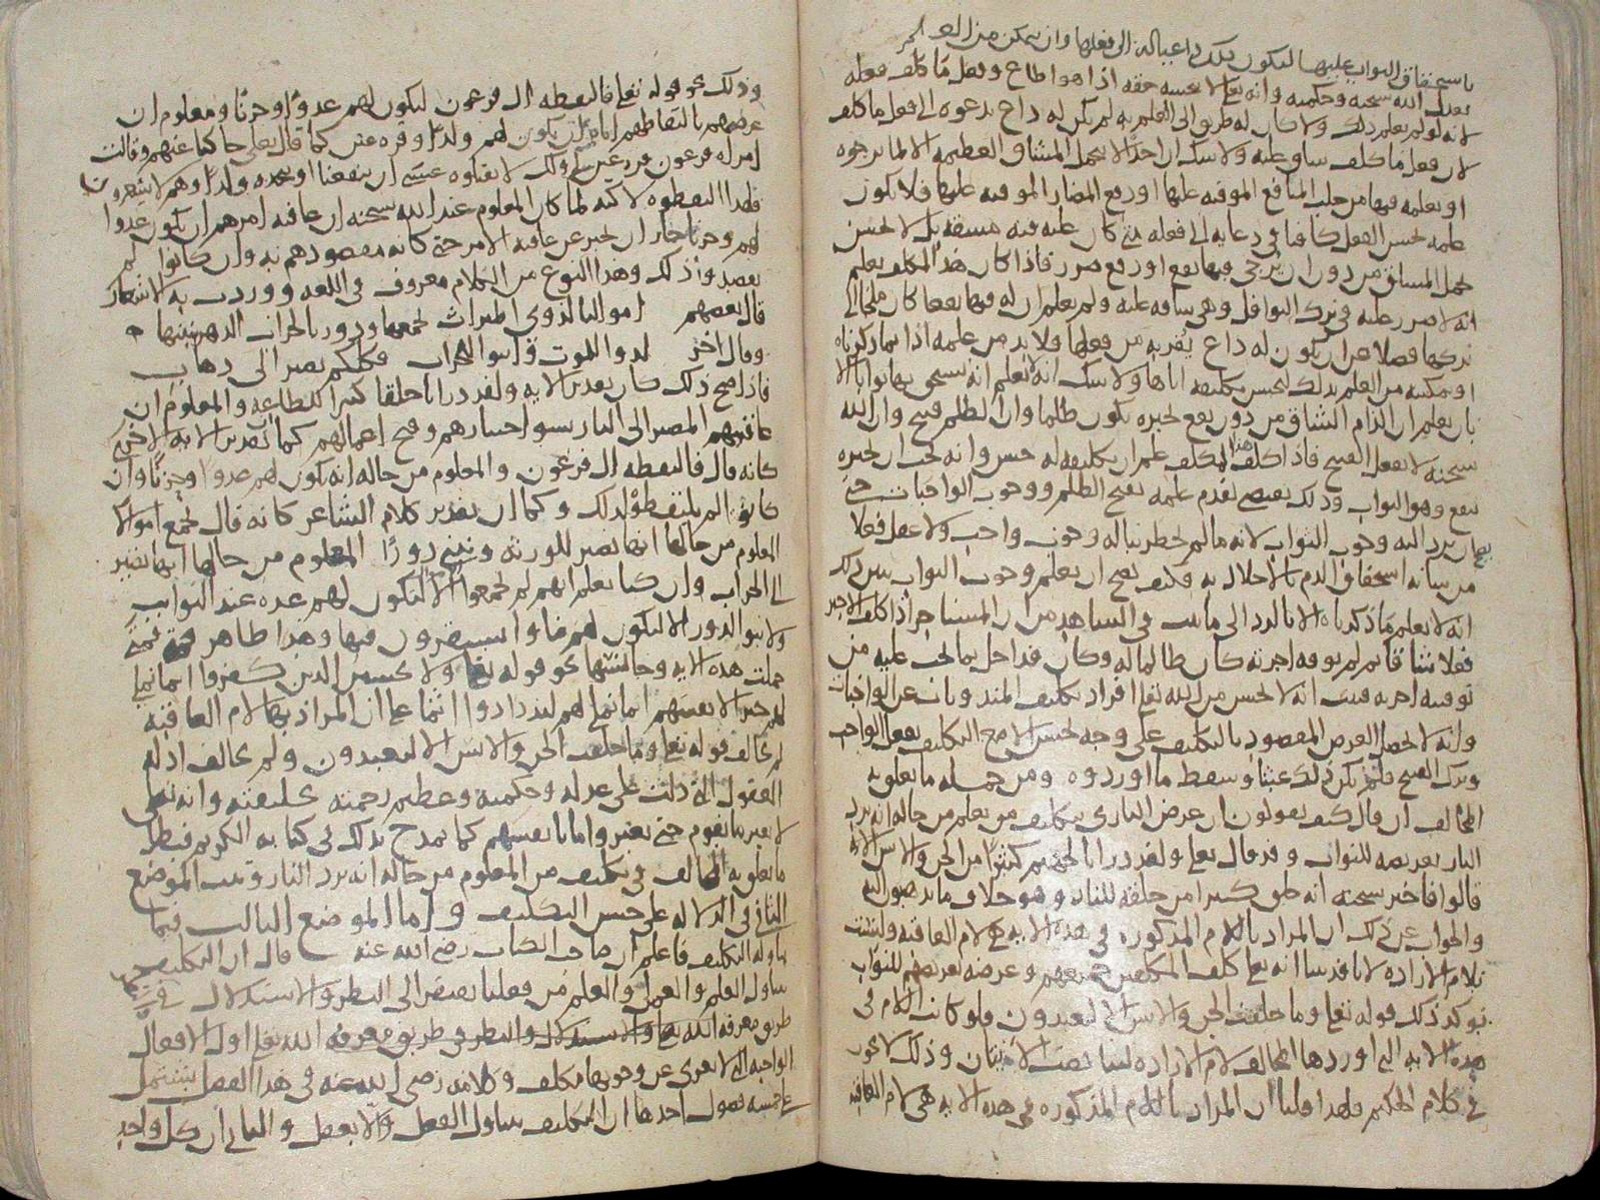 باستحقاق الثواب عليها ليكون ذلك داعيا له الى فعلها وان يتمكن من العلم
بعدل الله سبحنه وحكمته وانه تعلى لا يبخسه حقه اذا هو اطاع وفعل ما كلف فعله
لانه لو لم يعلم ذلك ولا كان له طريق الى العلم به لم يكن له داع يدعوه الى فعل ما كلف
لان فعل ما كلف شاق عليه ولا شك ان احدا لا يتحمل المشاق العظيمة الا لما يرجوه
او يعلمه فيها من جلب المنافع الموفيه عليها او دفع المضار الموفيه عليها فلا يكون
علمه بحسن الفعل كافيا في دعايه الى فعله متى كان عليه فيه مشقه بل لا يحسن
تحمل المشاق من دون ان يرجى فيها نفع او دفع ضرر فاذا كان هذا المكلف يعلم
انه لا ضرر عليه في ترك النوافل وهي شاقه عليه ولم يعلم ان له فيها نفعا كان ملجا الى
تركها فضلا عن ان يكون له داع يقربه من فعلها فلا بد من علمه اذا بما ذكرناه
او تمكنه من العلم بذلك ليحسن تكليفه اياها ولا شك انه لا يعلم انه يستحق بها ثوابا الا
بان يعلم ان الزام الشاق من دون نفع يجبره يكون ظلما وان الظلم قبيح وان الله
سبحنه لا يفعل القبيح فاذا كلف هذا المكلف علم ان تكليفه له حسن وانه يجب ان يجبره
بنفع وهو الثواب وذلك يقتضي تقدم علمه بقبح الظلم ووجوب الواجبات حتى
يصح ان يرد اليه وجوب الثواب لانه ما لم يخطر بباله وجوب واجب ولا عقل فعلا
من شانه استحقاق الذم بالاخلال به فكيف يصح ان يعلم وجوب الثواب يبين ذلك
انه لا يعلم ما ذكرناه الا بالرد الى ما ثبت في الشاهد من ان المستاجر اذا كلف الاجير
فعلا شاقا ثم لم يوفه اجرته كان ظالما له وكان قد اخل بما يجب عليه من
توفيه اجرته فثبت انه لا يحسن من الله تعلى افراد تكليف المندوبات عن الواجبات
وانه لا يحصل الغرض المقصود بالتكليف على وجه يحسن الا مع التكليف بفعل الواجب
وترك القبيح فلم يكن ذلك عبثا وسقط ما اوردوه ومن جمله ما تعلق به
المخالف ان قال كيف يقولون ان غرض الباري بتكليف من يعلم من حاله انه يرد
النار تعريضه للثواب وقد قال تعلى ولقد ذرانا لجهنم كثيرا من الجن والانس الايه
قالوا فاخبر سبحنه انه خلق كثيرا من خلقه للنار وهو خلاف ما تذهبون اليه
والجواب عن ذلك ان المراد باللام المذكوره في هذه الايه هي لام العاقبه وليست
بلام الاراده لانا قد بينا انه تعلى كلف المكلفين جميعهم وغرضه تعريضهم للثواب
يوكد ذلك قوله تعلى وما خلقت الجن والانس الا ليعبدون فلو كانت اللام في
هذه الايه التي اوردها المخالف لام الاراده لتناقضت الايتان وذلك لا يجوز
في كلام الحكيم فلهذا قلنا ان المراد باللام المذكوره في هذه الايه هي لام العاقبه
وذلك نحو قوله تعلى فالتقطه ال فرعون ليكون لهم عدوا وحزنا ومعلوم ان
غرضهم بالتقاطهم اياه ان يكون لهم ولدا وقره عين كما قال تعلى حاكيا عنهم وقالت
امراه فرعون قره عين لي ولك لا تقتلوه عسى ان ينفعنا او نتخذه ولدا وهم لا يشعرون
فلهذا التقطوه لاكنه لما كان المعلوم عند الله سبحنه ان عاقبه امرهم ان يكون عدوا
لهم وحزنا جاز ان يخبر عن عاقبه الامر حتى كانه مقصودهم به وان كانوا لم
يقصدوا ذلك وهذا النوع من الكلام معروف في اللغه ووردت به الاشعار
قال بعضهم اموالنا لذوي الميراث نجمعها ودورنا لخراب الدهر نبنيها
وقال اخر لدوا للموت وابنوا للخراب فكلكم يصير الى ذهاب
فاذا صح ذلك كان تقدير الايه ولقد ذرانا خلقا كثيرا للطاعه والمعلوم ان
عاقبتهم المصير الى النار بسو اختيارهم وقبح اعمالهم كما تقدير الايه الاخرى
كانه قال فالتقطه ال فرعون والمعلوم من حاله انه يكون لهم عدوا وحزنا وان
كانوا لم يلتقطوه لذلك وكما ان تقدير كلام الشاعر كانه قال نجمع اموالا
المعلوم من حالها انها تصير للورثه ونبني دورا المعلوم من حالها انها تصير
الى الخراب وان كنا نعلم انهم لم يجمعوا المال الا ليكون لهم عده عند النوايب
ولا بنوا الدور الا ليكون لهم ماوا يستقرون فيها وهذا ظاهر فمتى
حملت هذه الايه وما جانسها نحو قوله تعلى ولا يحسبن الذين كفروا انما نملي
لهم خير لانفسهم انما نملي لهم ليزدادوا اثما على ان المراد بها لام العاقبه
لم يخالف قوله تعلى وما خلقت الجن والانس الا ليعبدون ولم يخالف ادله
العقول التي دلت على عدله وحكمته وعظيم رحمته بخليقته وانه تعلى
لا يغير ما بقوم حتى يغيروا ما بانفسهم كما تمدح بذلك في كتابه الكريم فبطل
ما تعلق به المخالف في تكليف من المعلوم من حاله انه يرد النار وثبت الموضع
الثاني في الدلاله على حسن التكليف واما الموضع الثالث فيما
يتناوله التكليف فاعلم ان صاحب الكتاب رضي الله عنه قال ان التكليف
يتناول العلم والعمل والعلم من فعلنا يفتقر الى النظر والاستدلال في
طريق معرفه الله تعلى والاستدلال والنظر في طريق معرفه الله تعلى اول الافعال
الواجبه التي لا يعرى عن وجوبها مكلف وكلامه رضي الله عنه في هذا الفصل يشتمل
على خمسه فصول احدها ان التكليف يتناول الفعل والا يفعل والثاني ان كل واحد